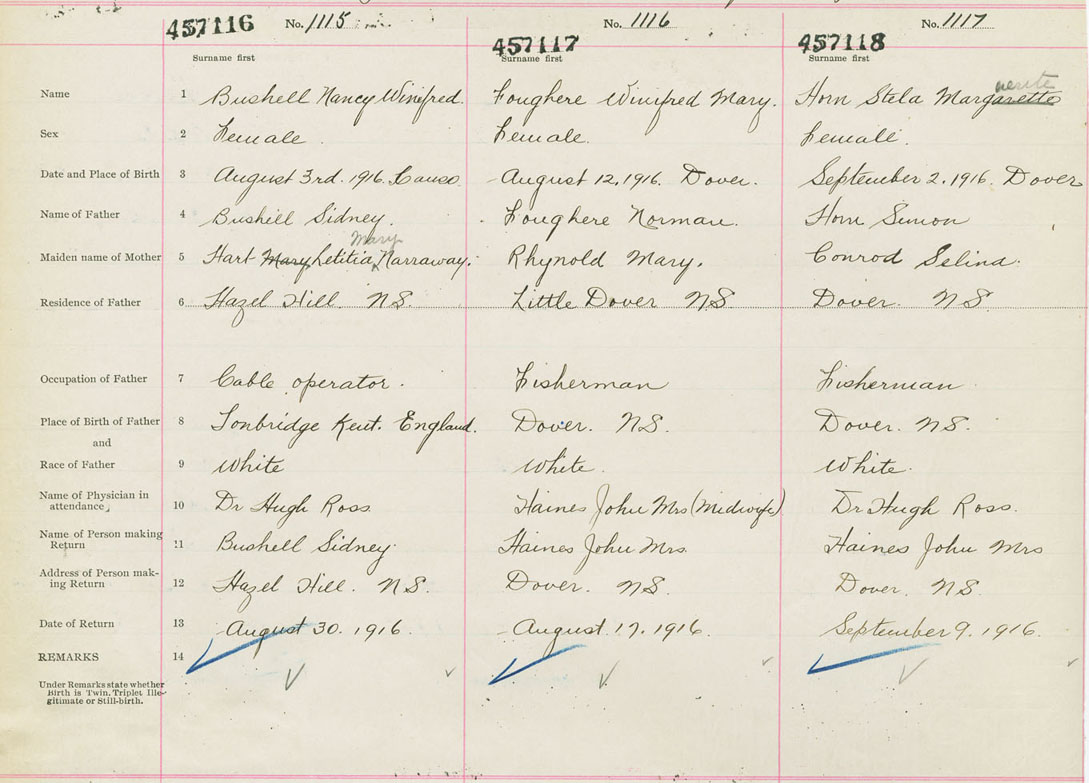 457116 No. 1115 457117 No. 1116 457118 No. 1117
Surname first Surname first Surname first
uerite
Name 1 Bushell Nancy Winifred. Foughere Winifred Mary. Horn Stela Margarette
Sex 2 Female Female. Female.
Date and Place of Birth 3 August 3rd. 1916. Canso. August 12, 1916. Dover. September 2, 1916. Dover
Name of Father 4 Bushell Sidney. Foughere Norman. Horn Simon
Mary
Maiden name of Mother 5 Hart Mary Letitia Narraway. Rhynold Mary. Conrod Selina.
Residence of Father 6 Hazel Hill. NS. Little Dover NS. Dover. NS.
Occupation of Father 7 Cable operator. Fisherman Fisherman
Place of Birth of Father 8 Tonbridge Kent. England. Dover. NS. Dover. NS.
and
Race of Father 9 White White. White.
Name of Physician in
attendance, 10 Dr Hugh Ross Haines John Mrs (Midwife) Dr Hugh Ross.
Name of Person making
Return 11 Bushell Sidney Haines John Mrs. Haines John Mrs
Address of Person mak-
ing Return 12 Hazel Hill. NS. Dover. NS. Dover. NS.
Date of Return 13 August 30. 1916. August 17. 1916. September 9. 1916
REMARKS 14
Under Remarks state whether
Birth is Twin, Triplet Ille-
gitimate or Still-birth.